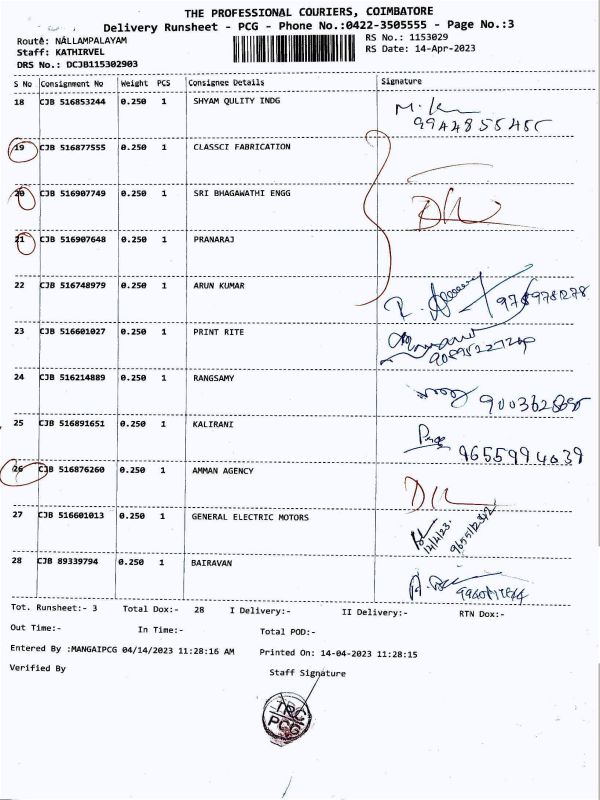 THE PROFESSIONAL COURIERS, COIMBATORE
Delivery Runsheet - PCG - Phone No.:0422-3505555 - Page No.:3
Route: NALLAMPALAYAM RS No.: 1153029
Staff: KATHIRVEL RS Date: 14-Apr-2023
DRS No.: DCJB115302903
S No Consignment No Weight PCS Consignee Details Signature
18 CJB 516853244 0.250 1 SHYAM QULITY INDG
19 CJB 516877555 0.250 1 CLASSCI FABRICATION
20 CJB 516907749 0.250 1 SRI BHAGAWATHI ENGG
21 CJB 516907648 0.250 1 PRANARAJ
22 CJB 516748979 0.250 1 ARUN KUMAR
23 CJB 516601027 0.250 1 PRINT RITE
24 CJB 516214889 0.250 1 RANGSAMY
25 CJB 516891651 0.250 1 KALIRANI
26 CJB 516876260 0.250 1 AMMAN AGENCY
27 CJB 516601013 0.250 1 GENERAL ELECTRIC MOTORS
28 CJB 89339794 0.250 1 BAIRAVAN
Tot. Runsheet:- 3 Total Dox:- 28 I Delivery:- II Delivery:- RTN Dox:-
Out Time:- In Time:- Total POD:-
Entered By :MANGAIPCG 04/14/2023 11:28:16 AM Printed On: 14-04-2023 11:28:15
Verified By Staff Signature